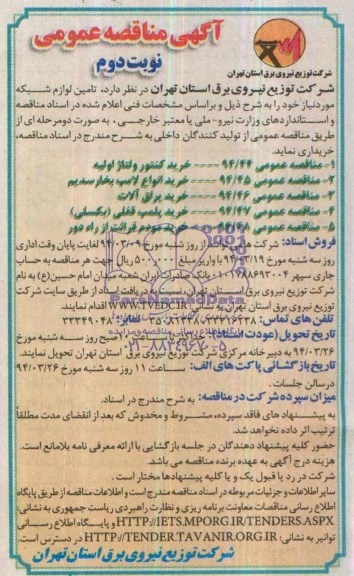 آگهی مناقصه عمومی
نوبت دوم
شرکت توزیع نیروی برق استان تهران
شرکت توزیع نیروی برق استان تهران در نظر دارد، تامین لوازم شبکه
موردنیاز خود را به شرح ذیل و براساس مشخصات فنی اعلام شده در اسناد مناقصه
و استانداردهای وزارت نیرو-ملی یا معتبر خارجی، به صورت دومرحله ای از
طریق مناقصه عمومی از تولید کنندگان داخلی به شرح مندرج در اسناد مناقصه،
خریداری نماید.
۱- مناقصه عمومی ۹۴/۴۴ ---- خرید کنتور ولتاژ اولیه
۲- مناقصه عمومی ۹۴/۴۵ ---- خرید انواع لامپ بخارسدیم
۳- مناقصه عمومی ۹۴/۴۶ ---- خرید یراق آلات
۴- مناقصه عمومی ۹۴/۴۷ ---- خرید پلمپ قفلی (بکسلی)
۵- مناقصه عمومی ۹۴/۴۸ ---- خرید مودم قرائت از راه دور
فروش اسناد: شرکت از روز شنبه مورخ ۹۴/۰۳/۰۹ لغایت پایان وقت اداری
روز سه شنبه مورخ ۹۴/۰۳/۱۹ با واریز مبلغ ۵۰۰,۰۰۰ ریال جهت هر مناقصه به حساب
جاری سپهر بانک صادرات ایران شعبه میدان امام حسین(ع) به نام
شرکت توزیع نیروی برق استان تهران، نسبت به دریافت اسناد از طریق سایت شرکت
توزیع نیروی برق استان تهران به نشانی: WWW.TVEDC.IR اقدام نمایند.
تلفن های تماس: نمابر: ۳۳۳۴۹۰۴۸
تاریخ تحویل (عودت اسناد): صبح روز سه شنبه مورخ
۹۴/۰۳/۲۶ به دبیرخانه مرکزی شرکت توزیع نیروی برق استان تهران تحویل نمایند.
تاریخ بازگشائی پاکت های الف: ساعت ۱۱ روز سه شنبه مورخ ۹۴/۰۳/۲۶
درسالن جلسات.
میزان سپرده شرکت در مناقصه: به شرح مندرج در اسناد.
به پیشنهاد های فاقد سپرده، مشروط و مخدوش که بعد از انقضای مدت مطلقاً
ترتیب اثر داده نخواهد شد.
حضور کلیه پیشنهاد دهندگان در جلسه بازگشایی با ارائه معرفی نامه بلامانع است.
هزینه درج آگهی به عهده برنده مناقصه می باشد.
شرکت در رد یا قبول یک و یا کلیه پیشنهادها مختار است.
سایر اطلاعات و جزئیات مربوطه در اسناد مناقصه مندرج است و اطلاعات مناقصه از طریق پایگاه
اطلاع رسانی مناقصات معاونت برنامه ریزی و نظارت راهبردی ریاست جمهوری به نشانی:
HTTP://IETS.MPORG.IR/TENDERS.ASPX و پایگاه اطلاع رسانی
توانیر به نشانی: HTTP://TENDER.TAVANIR.ORG.IR در دسترس است.
شرکت توزیع نیروی برق استان تهران
ParsNamadData
پایگاه اطلاع رسانی مناقصه و مزایده
۰۲۱-۸۸۳۴۹۶۷۰